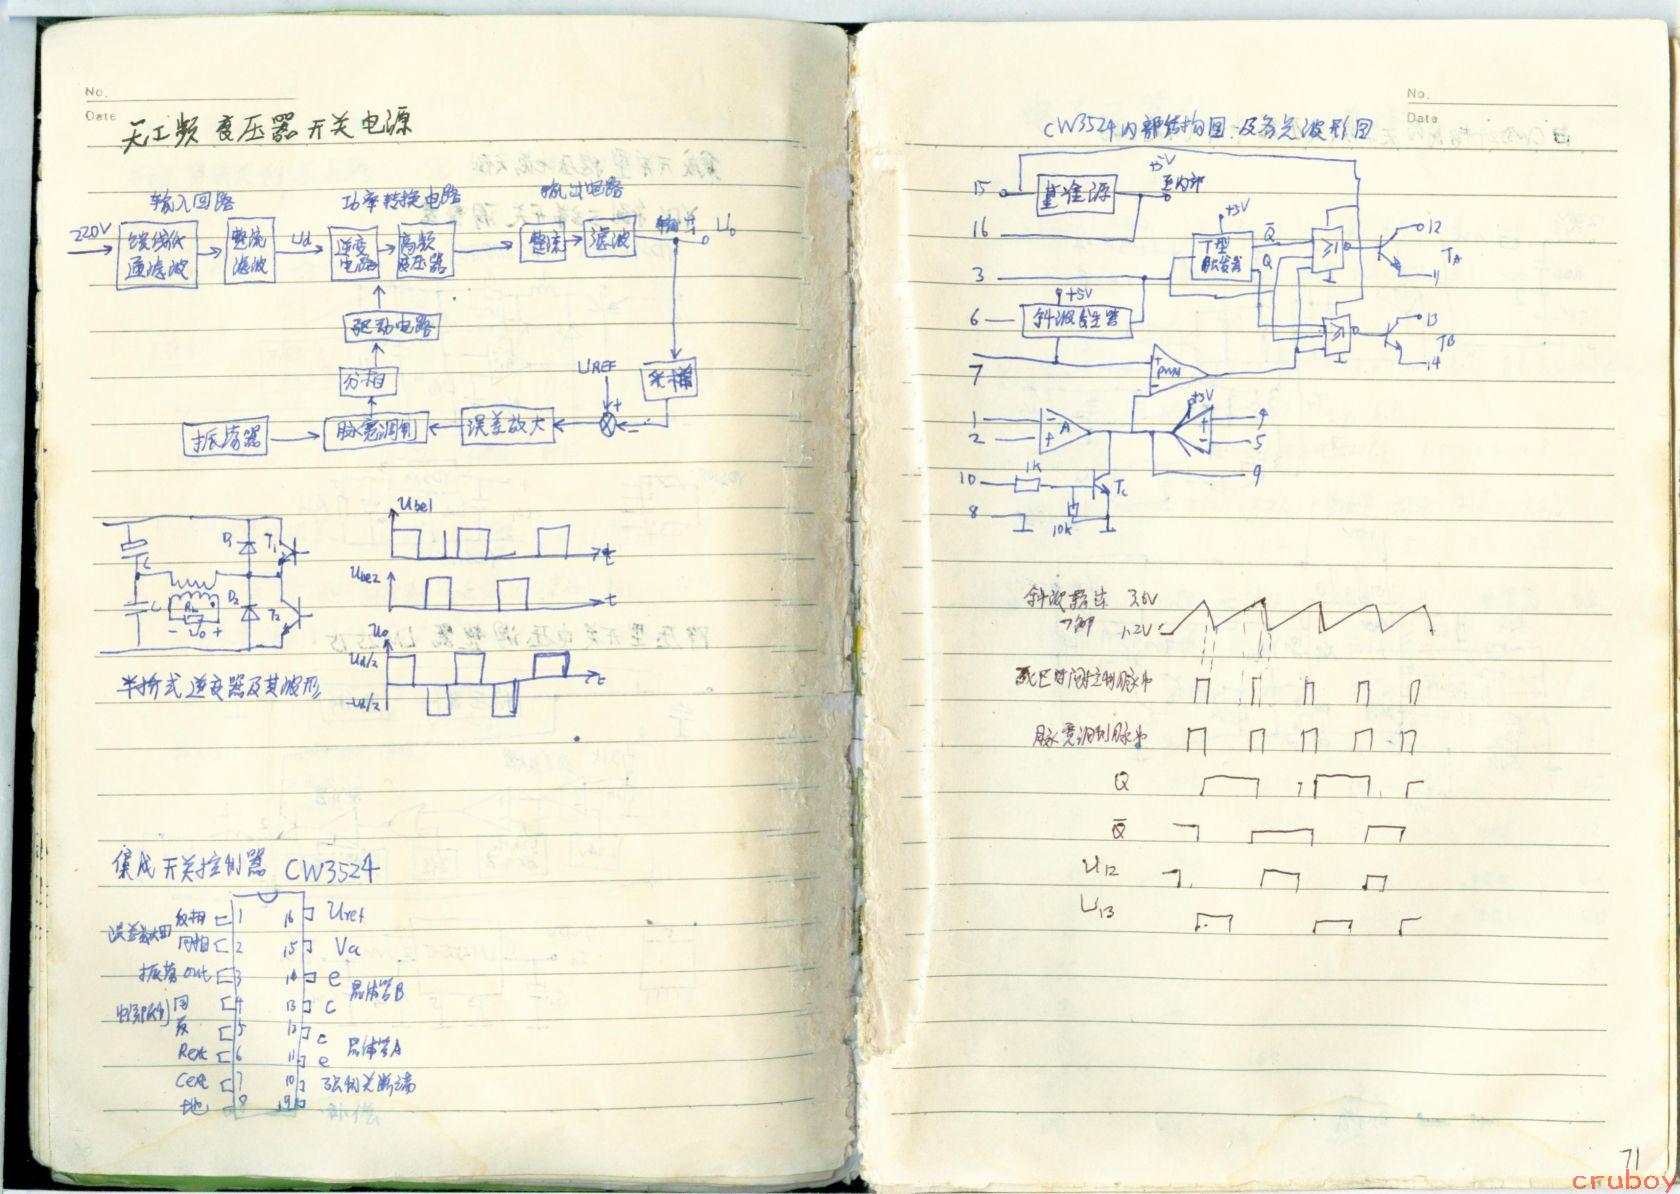 No.
Date
无工频变压器开关电源
输入回路 功率转换电路 输出电路
220V 馈线低通滤波 整流滤波 Ud 逆变电路 高频变压器 整流 滤波 输出 Uo
驱动电路
分相 UREF 采样
振荡器 脉宽调制 误差放大 + −
Ube1
C D1 T1 t
Ube2
C RL D2 T2 t
− Uo +
Uo
Ud/2 t
-Ud/2
半桥式逆变器及其波形
集成开关控制器 CW3524
误差放大 反相 1 16 Uref
同相 2 15 Va
振荡 out 3 14 e 晶体管B
电流限制 同 4 13 c
反 5 12 c 晶体管A
Rext 6 11 e
Cext 7 10 强制关断端
地 8 9 补偿
No.
Date
CW3524内部结构图及各点波形图
15 基准源 +5V 至内部
16
+5V
T型触发器 Q̄ Q ≥1 12 TA 11
3
+5V
6 斜波发生器 ≥1 13 TB 14
7 + PWM −
1 − A +5V 4
2 + 5
9
10 1K Tc
8 10K
斜波输出 3.6V
7脚 1.2V
死区时间控制脉冲
脉宽调制脉冲
Q
Q̄
U12
U13
71
cruboy